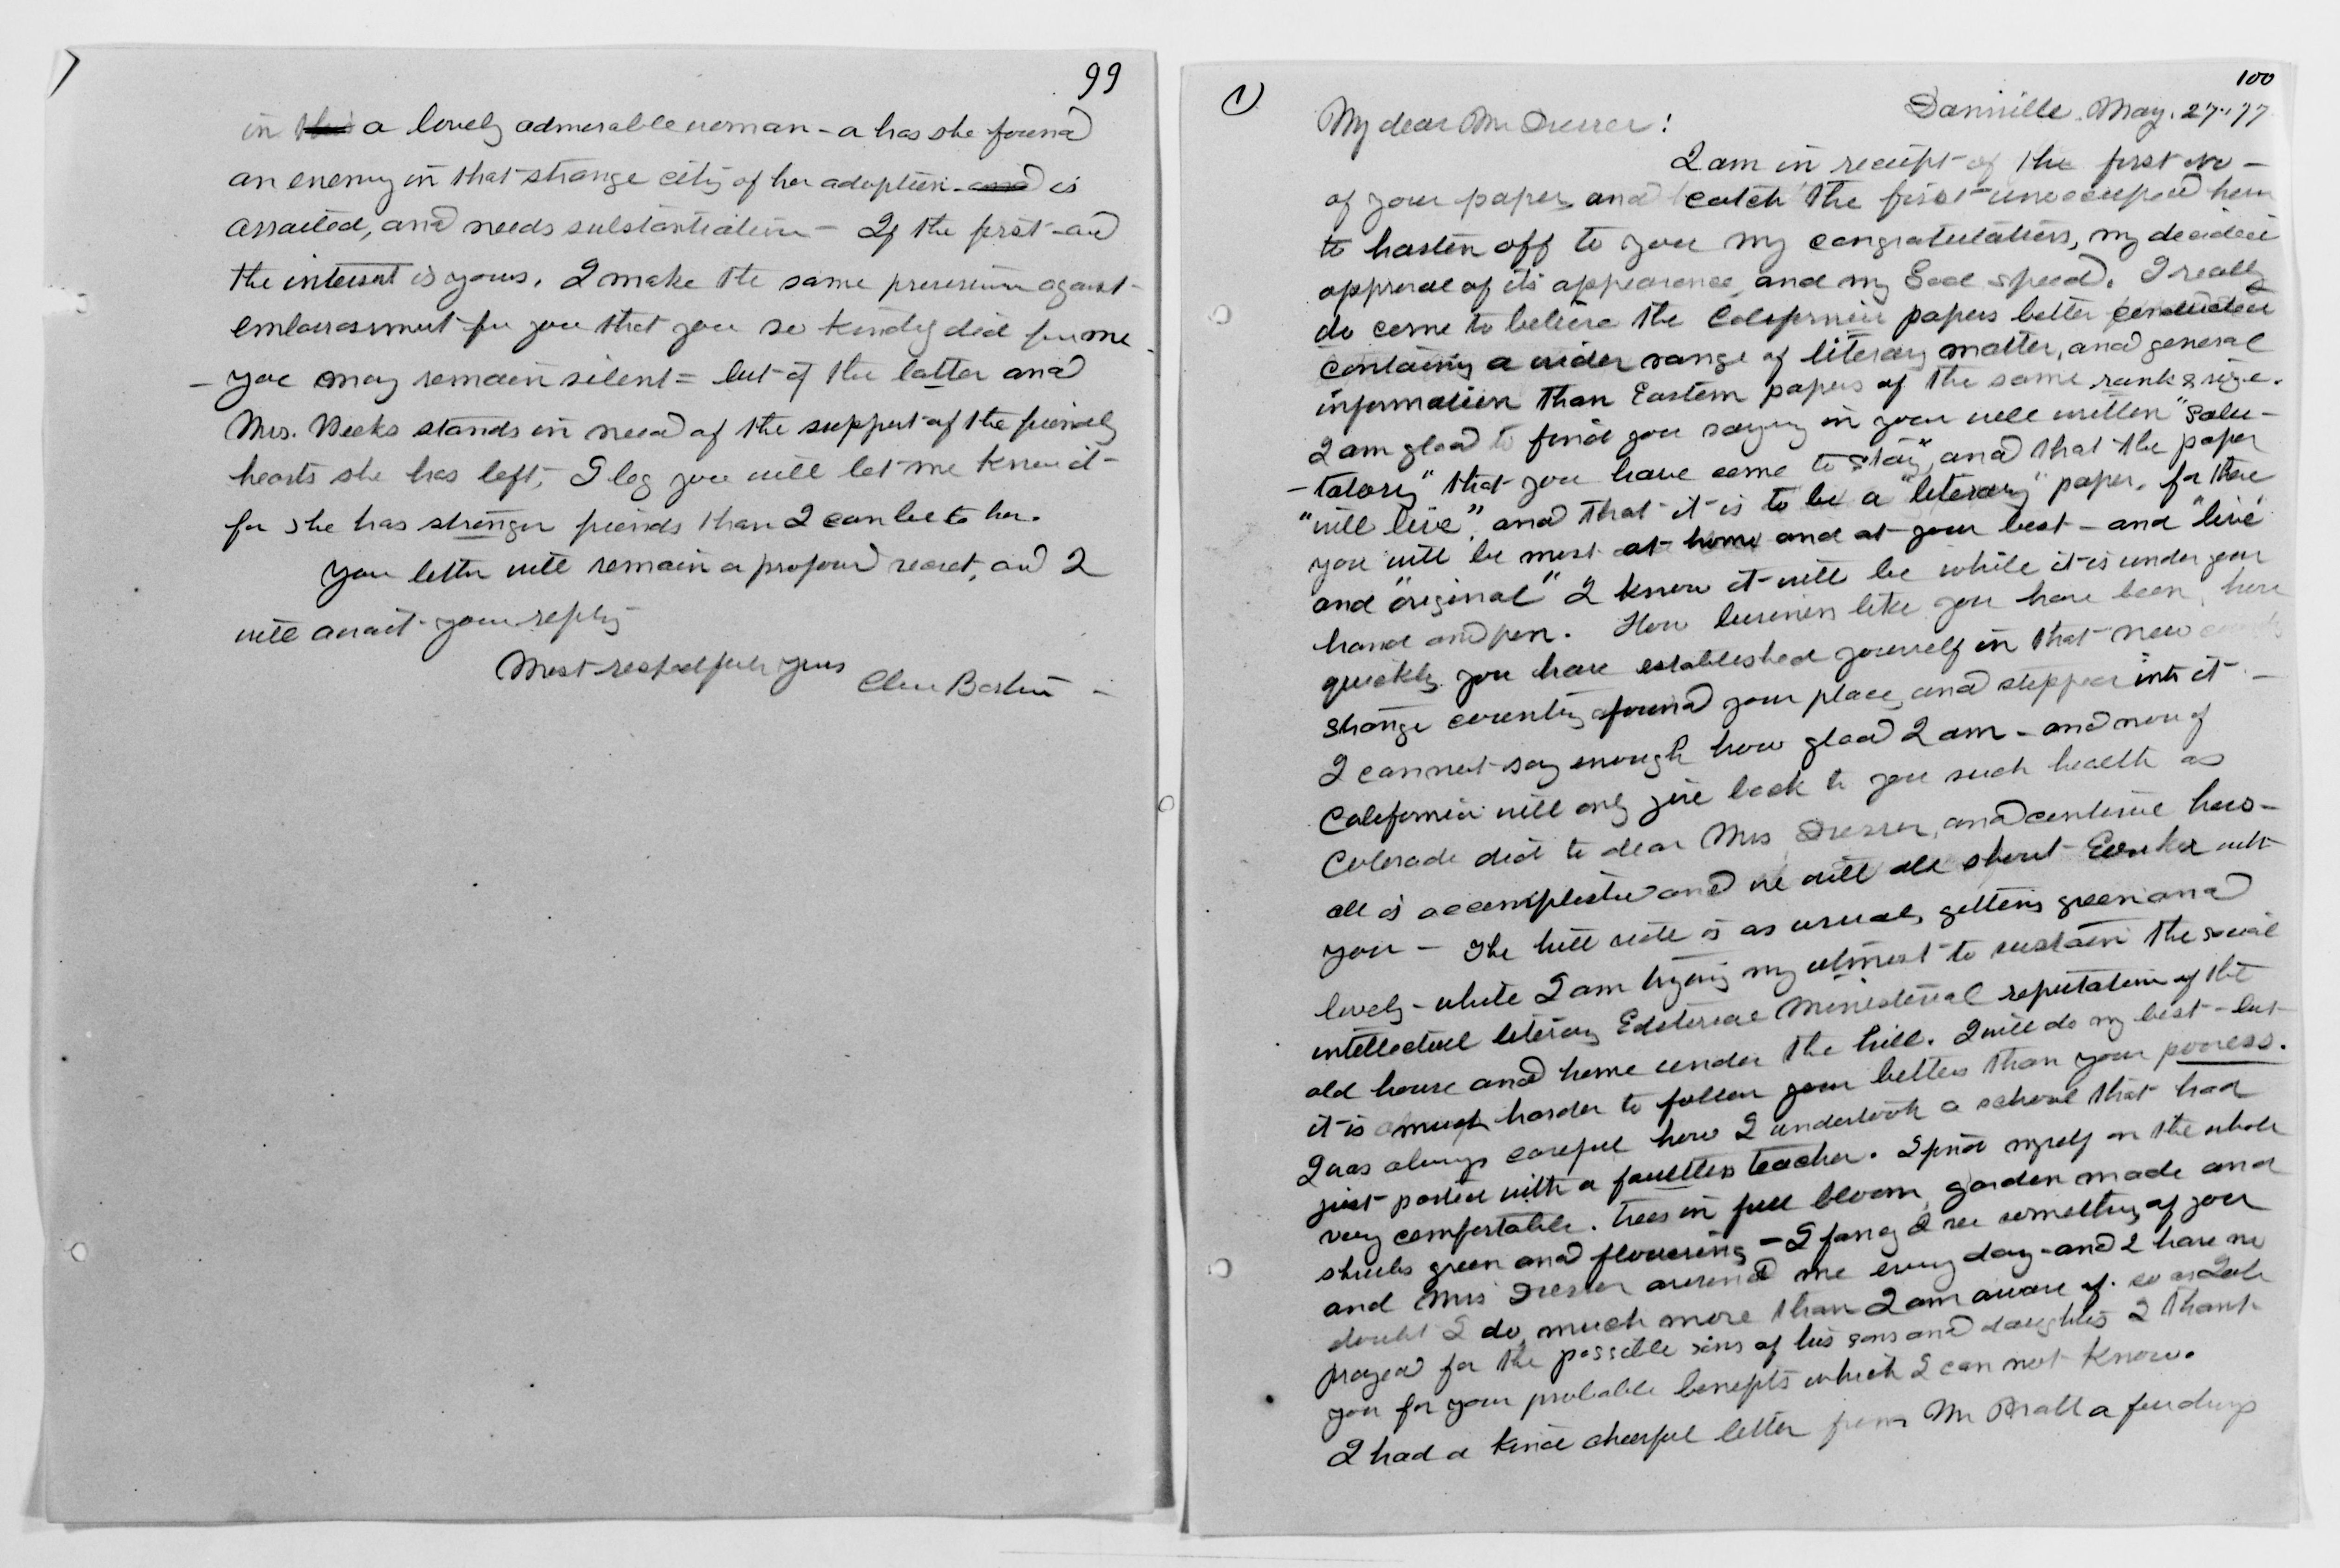 99
in a lovely admirable woman - a has she found
an enemy in that strange city of her adoption - and is
assailed, and needs substantiation - If the first - and
the interest is yours. I make the same provision against
embarrassment for you that you so kindly did for me -
- you may remain silent = but if the latter and
Mrs. Weeks stands in need of the support of the friendly
hearts she has left, I beg you will let me know it -
for she has stronger friends than I can be to her.
Your letter will remain a profound secret, and I
will await your reply -
Most respectfully yours
Clara Barton -
100
1)
Dansville. May. 27. '77
My dear Mr Dresser:
I am in receipt of the first No -
of your paper, and catch the first unoccupied hour
to hasten off to you my congratulations, my decided
approval of its appearance, and my God speed. I really
do come to believe the California papers better conducted
containing a wider range of literary matter, and general
information than Eastern papers of the same rank & size.
I am glad to find you saying in your well written "Salu-
-tatory" that you have come to "stay", and that the paper
"will live", and that it is to be a "literary" paper, for there
you will be most at home and at your best - and "live"
and "original" I know it will be while it is under your
hand and pen. How business like you have been, how
quickly you have established yourself in that new
strange country found your place, and stepped into it -
I cannot say enough how glad I am - and now if
California will only give back to you such health as
Colorado did to dear Mrs Dresser, and continue hers -
all is accomplished and we will all shout Eureka with
you - The hill side is as usual, getting green and
lovely - while I am trying my utmost to sustain the social
intellectual literary Editorial Ministerial reputation of the
old house and home under the hill. I will do my best - but
it is much harder to follow your betters than your poorers.
I was always careful how I undertook a school that had
just parted with a faultless teacher. I find myself on the whole
very comfortable. Trees in full bloom, garden made and
shrubs green and flowering - I fancy I see something of you
and Mrs Dresser around me every day - and I have no
doubt I do, much more than I am aware of. so as Job
prayed for the possible sins of his sons and daughters I thank
you for your probable benefits which I can not know.
I had a kind cheerful letter from Mr Pratt a few days